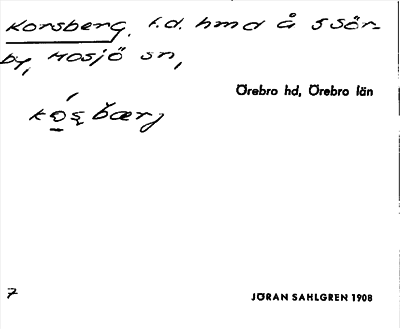 Korsberg, f.d. hmd å S Sör-
by, Mosjö sn,
Örebro hd, Örebro län
ko̱ʂbærj
7
JÖRAN SAHLGREN 1908